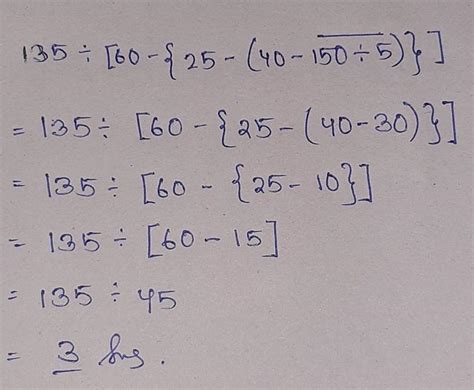 135 ÷ [60 - { 25 - (40 - 1͞5͞0͞ ͞÷͞ ͞5͞)}]
= 135 ÷ [60 - {25 - (40 - 30)}]
= 135 ÷ [60 - {25 - 10}]
= 135 ÷ [60 - 15]
= 135 ÷ 45
= 3 Ans.